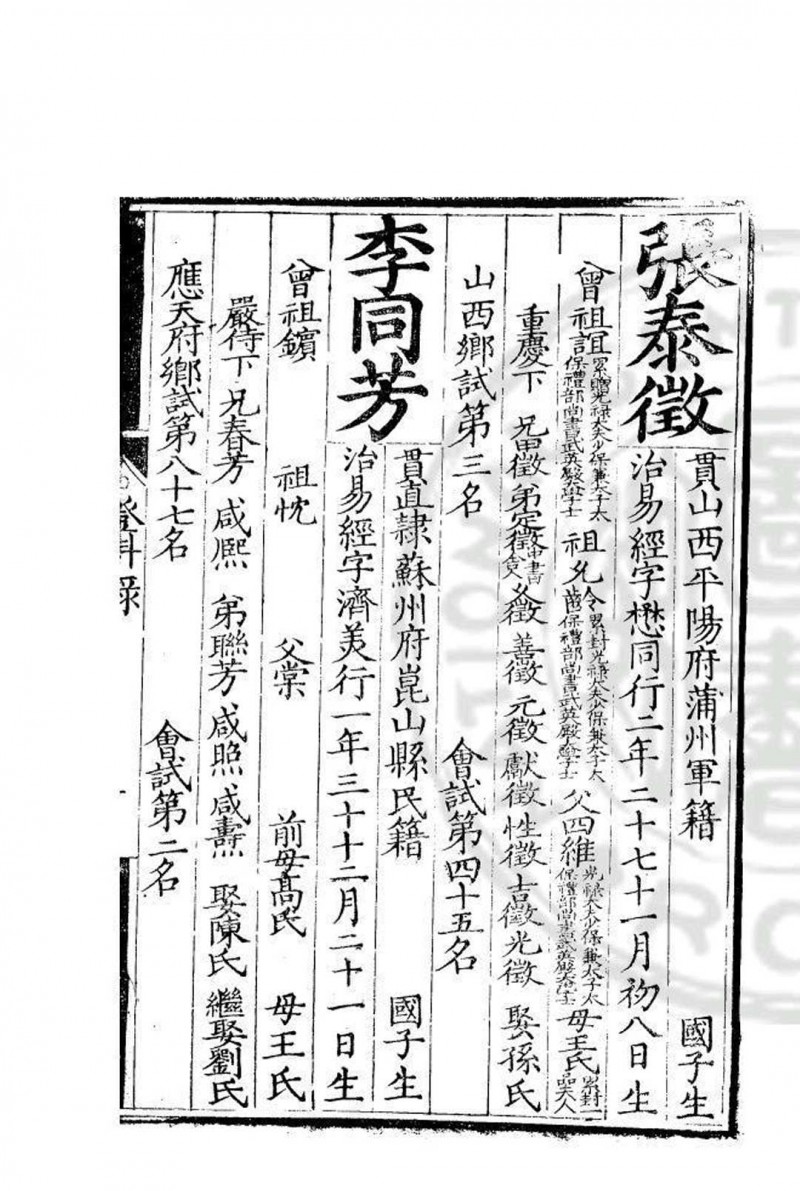 張泰徵
貫山西平陽府蒲州軍籍 國子生
治易經字懋同行二年二十七十一月初八日生
曾祖誼累贈光祿大夫少保兼太子太保禮部尚書武英殿大學士 祖允齡累封光祿大夫少保兼太子太保禮部尚書武英殿大學士 父四維光祿大夫少保兼太子太保禮部尚書武英殿大學士 母王氏累封一品夫人
重慶下 兄甲徵 弟定徵中書舍人 徵 善徵 元徵 獻徵 性徵 吉徵 光徵 娶孫氏
山西鄉試第三名 會試第四十五名
李同芳
貫直隸蘇州府崑山縣民籍 國子生
治易經字濟美行一年三十十二月二十一日生
曾祖鑌 祖忱 父棠 前母高氏 母王氏
嚴侍下 兄春芳 咸熈 弟聯芳 咸照 咸燾 娶陳氏 繼娶劉氏
應天府鄉試第八十七名 會試第二名
登科錄